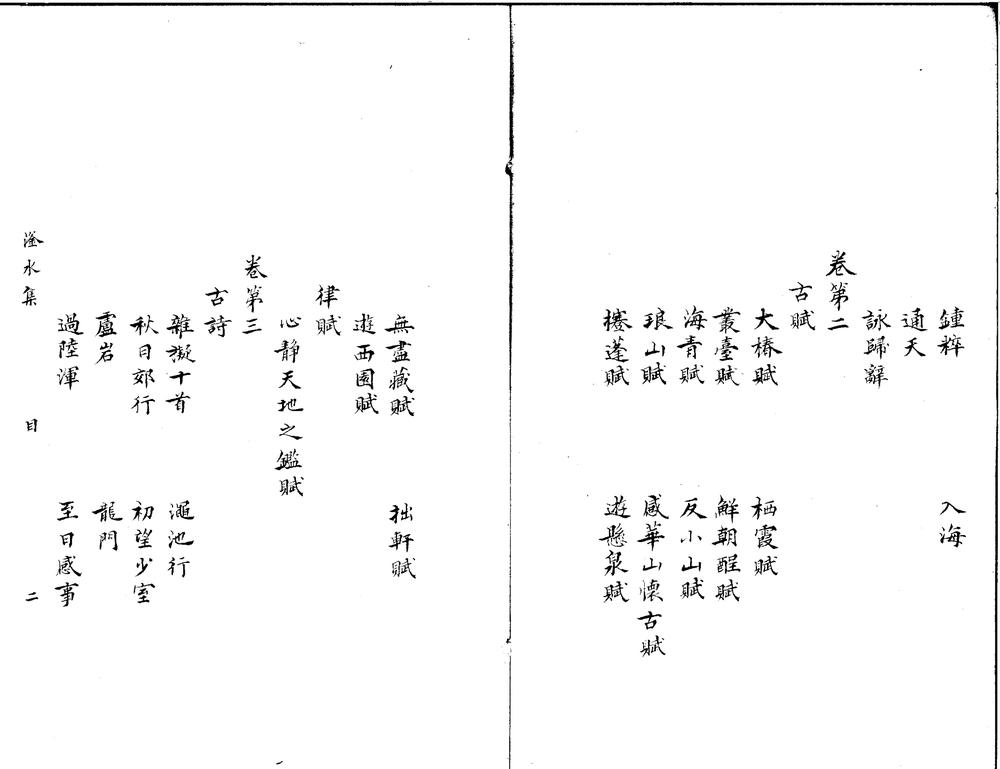 鍾粹 入海
通天
詠歸辭
卷第二
古賦
大椿賦 栖霞賦
叢臺賦 解朝酲賦
海青賦 反小山賦
琅山賦 感華山懷古賦
攓蓬賦 遊懸泉賦
無盡藏賦 拙軒賦
遊西園賦
律賦
心靜天地之鑑賦
卷第三
古詩
雜擬十首 澠池行
秋日郊行 初望少室
盧岩 龍門
過陸渾 至日感事
滏水集 目 二